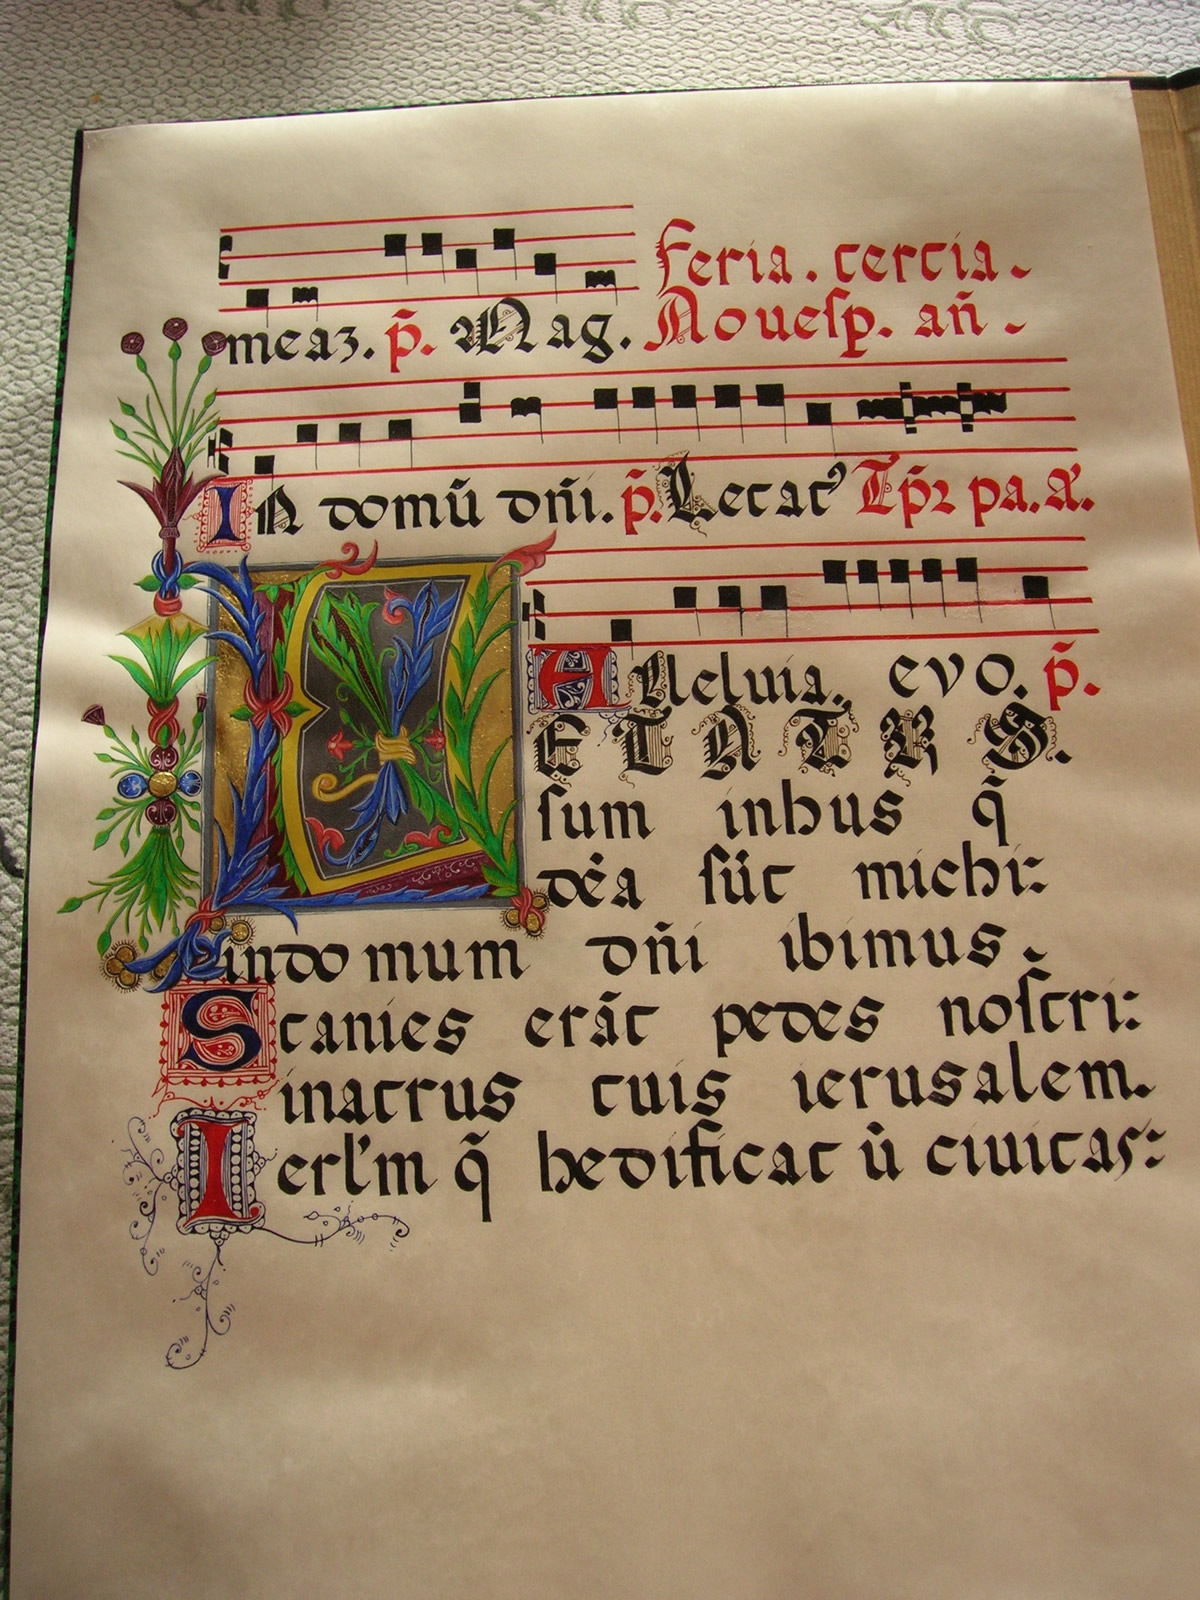 Feria. tercia.
meaz. p̄. Mag. Ad uesp. añ
In domū dn̄i. p̄. Letatꝰ Tp̄r pa. a.
Alleluia. evo. p̄.
LETATUS.
sum inhus q̄
dc̄a sūt michi:
indomum dn̄i ibimus.
Stantes erāt pedes nostri:
inatrus tuis ierusalem.
Ierl'm q̄ hedificat ū ciuitas: